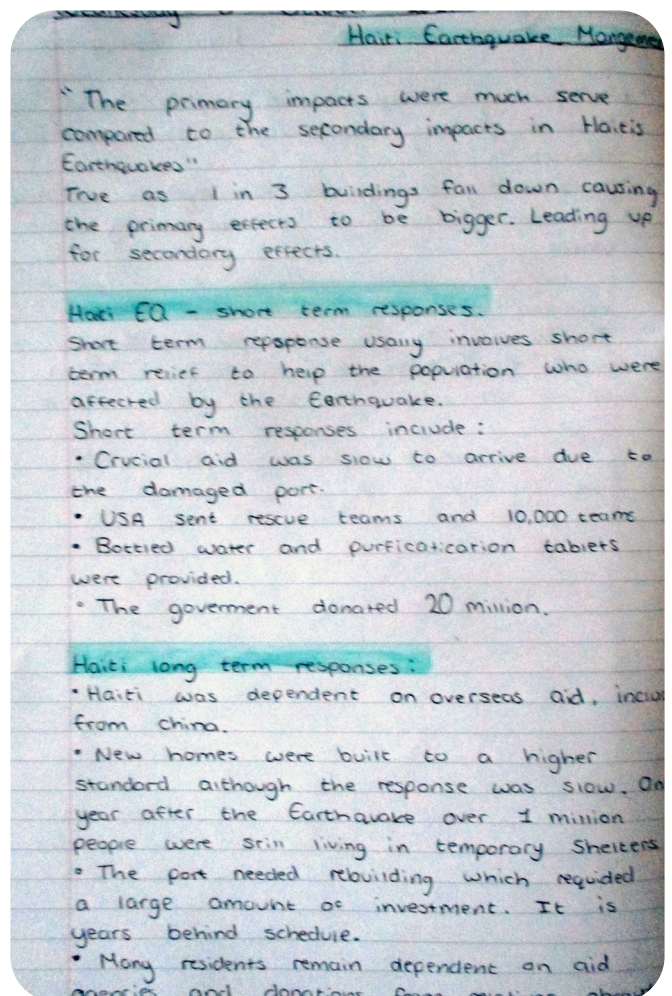 Haiti Earthquake
"The primary impacts were much serve
compared to the secondary impacts in Haitis
Earthquakes"
True as 1 in 3 buildings fall down causing
the primary effects to be bigger. Leading up
for secondary effects.
Haiti EQ - short term responses.
Short term repsponse usally involves short
term relief to help the population who were
affected by the Earthquake.
Short term responses include :
• Crucial aid was slow to arrive due to
the damaged port.
• USA sent rescue teams and 10,000 teams
• Bottled water and purficatication tablets
were provided.
• The goverment donated 20 million.
Haiti long term responses :
• Haiti was dependent on overseas aid,
from china.
• New homes were built to a higher
standard although the response was slow. On
year after the Earthquake over 1 million
people were still living in temporary Shelters
• The port needed rebuilding which requided
a large amount of investment. It is
years behind schedule.
• Many residents remain dependent on aid
agencies and donations from